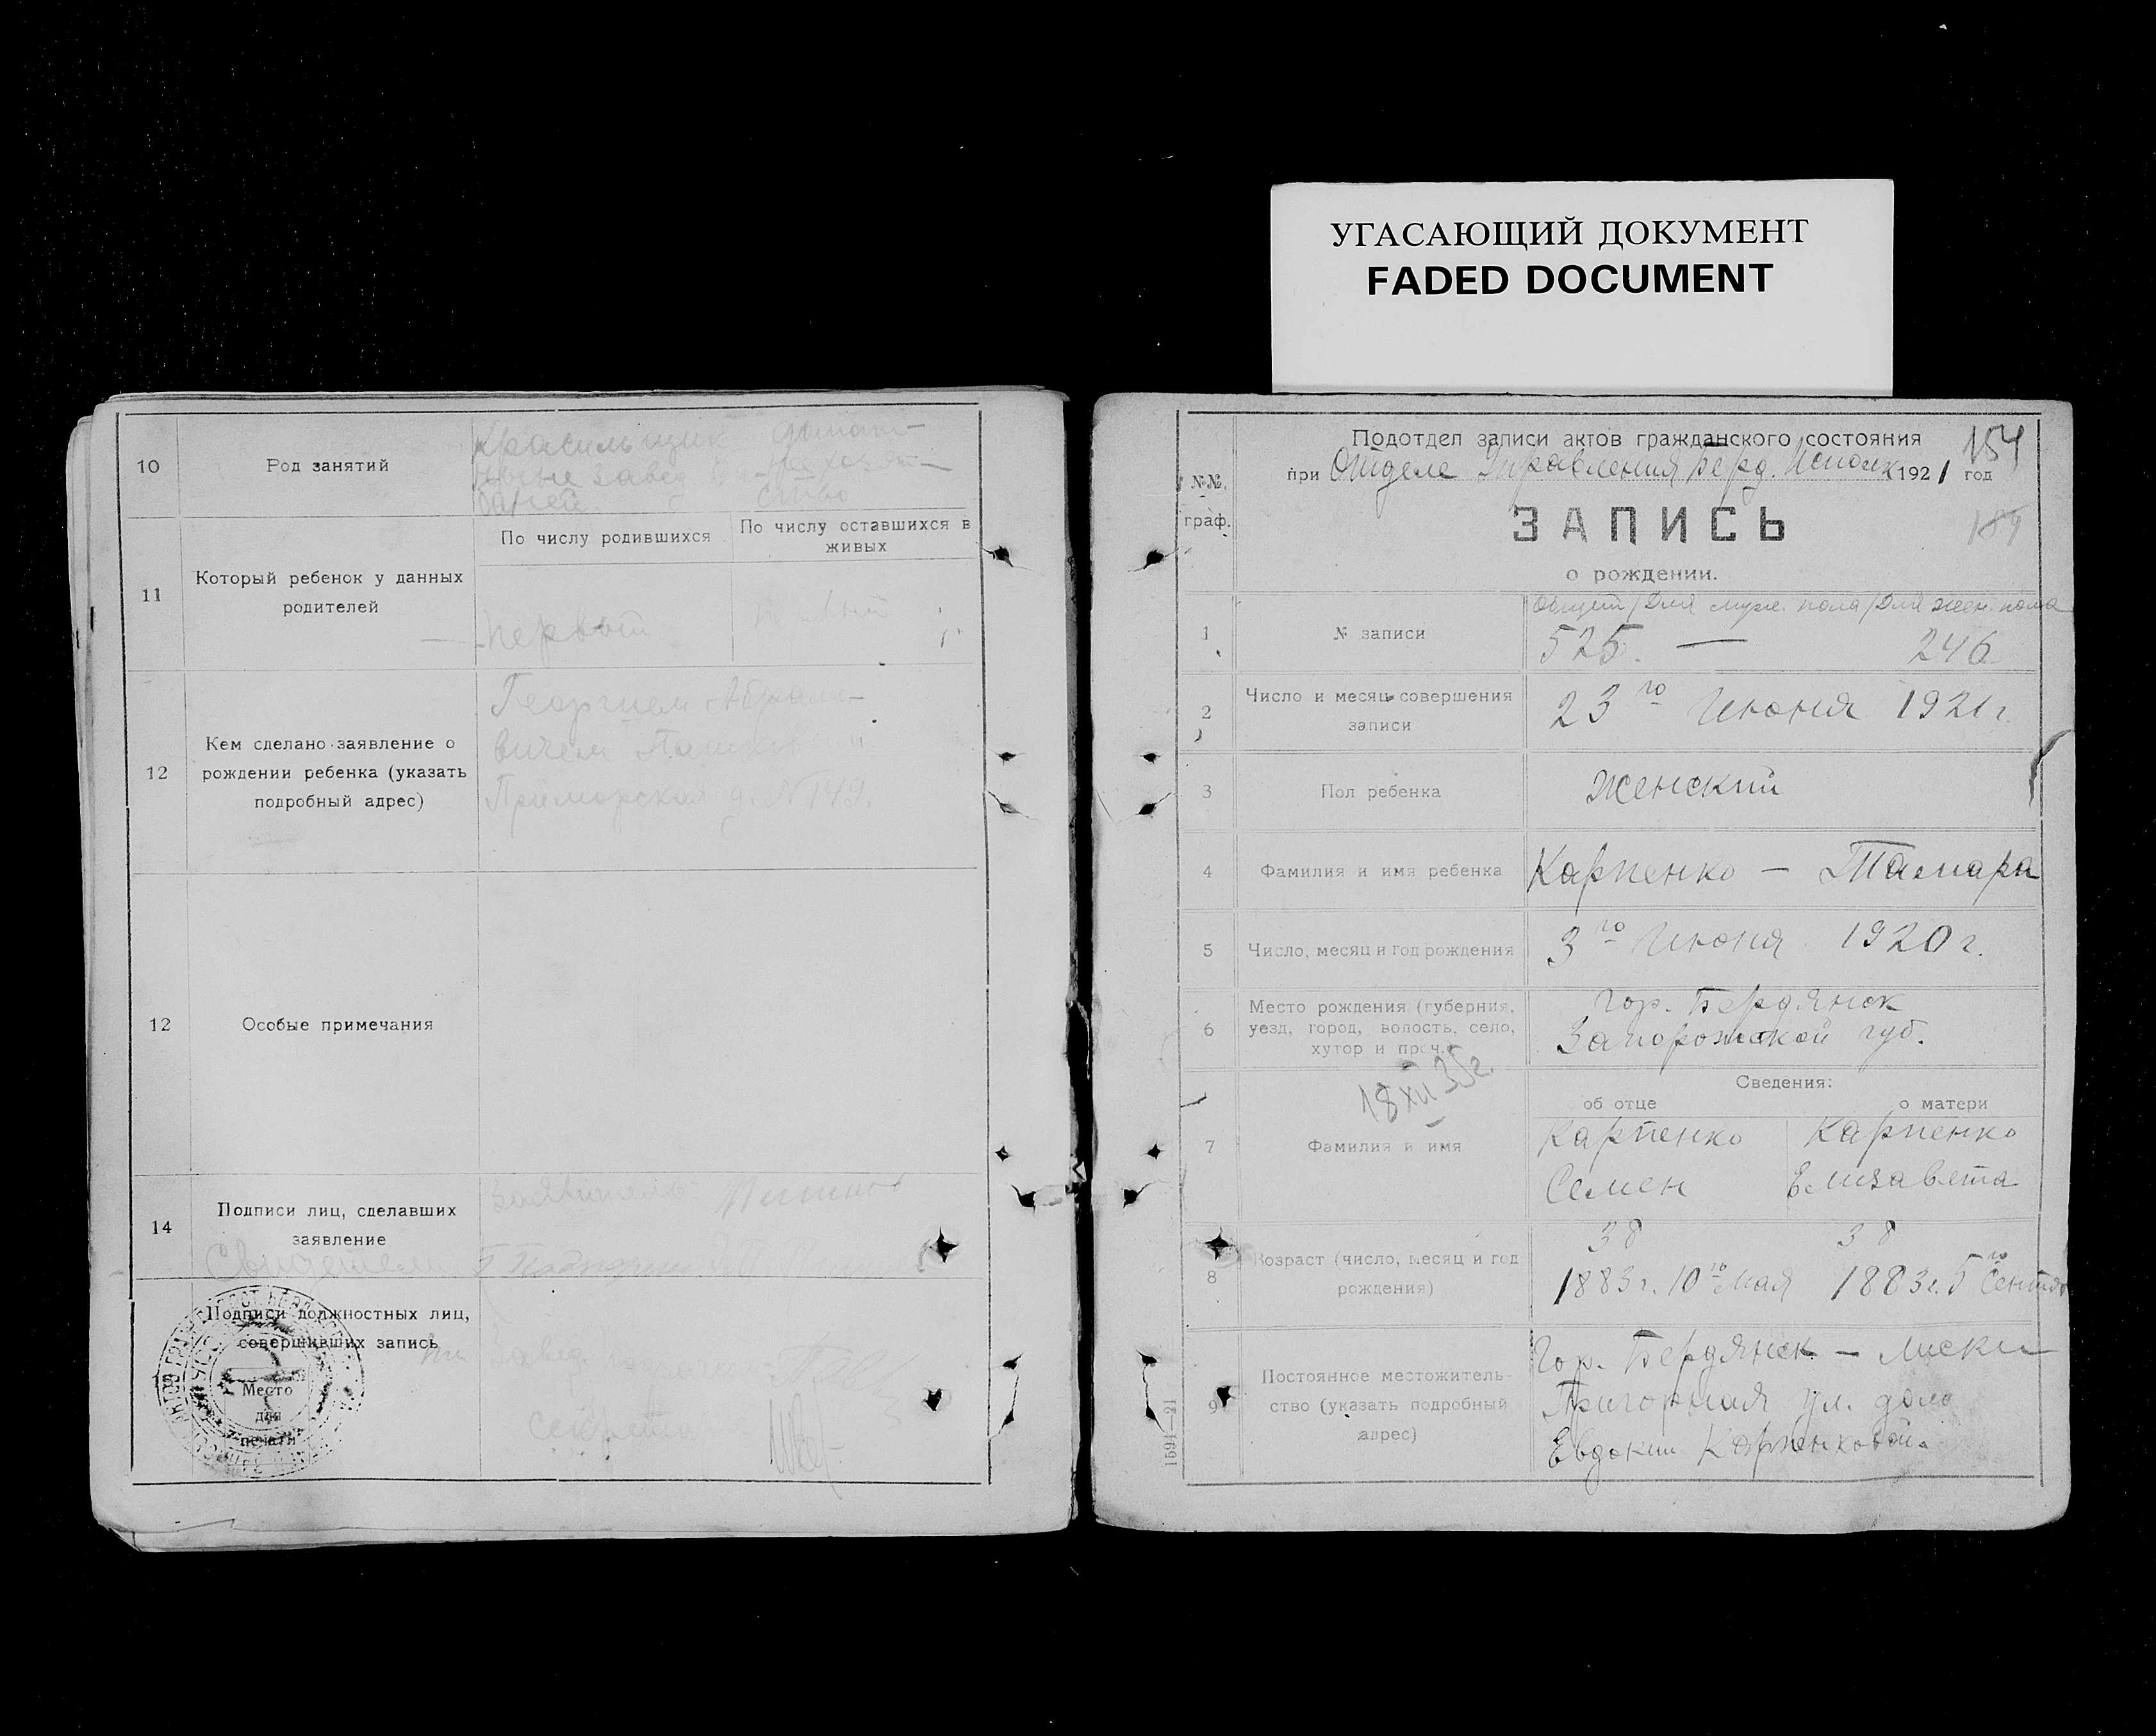 УГАСАЮЩИЙ ДОКУМЕНТ
FADED DOCUMENT
10
Род занятий
Красильщик
ныне завед
баней
домаш-
нее хозяй-
ство
11
Который ребенок у данных
родителей
По числу родившихся
По числу оставшихся в
живых
первый
первый
12
Кем сделано заявление о
рождении ребенка (указать
подробный адрес)
Георгием Абрам-
вичем
Приморская д. № 149.
12
Особые примечания
14
Подписи лиц, сделавших
заявление
Заявитель
Свидетели
Подписи должностных лиц,
совершивших запись
Место
для
печати
Завед
секрет
№№
граф.
Подотдел записи актов гражданского состояния
154
при Отделе Управления Берд. Исполк 1921 год
ЗАПИСЬ
189
о рождении.
1
№ записи
Общий / Для муж. пола / Для жен. пола
525. — 246
2
Число и месяц совершения
записи
23го Июня 1921 г.
3
Пол ребенка
Женский
4
Фамилия и имя ребенка
Карпенко — Тамара
5
Число, месяц и год рождения
3го Июня 1920 г.
6
Место рождения (губерния,
уезд, город, волость, село,
хутор и проч.)
гор. Бердянск
Запорожской губ.
18 XII 35 г.
Сведения:
об отце
о матери
7
Фамилия и имя
Карпенко
Семен
Карпенко
Елизавета
8
Возраст (число, месяц и год
рождения)
38
1883 г. 10го Мая
38
1883 г. 5го Сентяб
9
Постоянное местожитель-
ство (указать подробный
адрес)
Гор. Бердянск — Лиски
Пригорная ул. дом
Евдокии Карпенковой.
1591—21